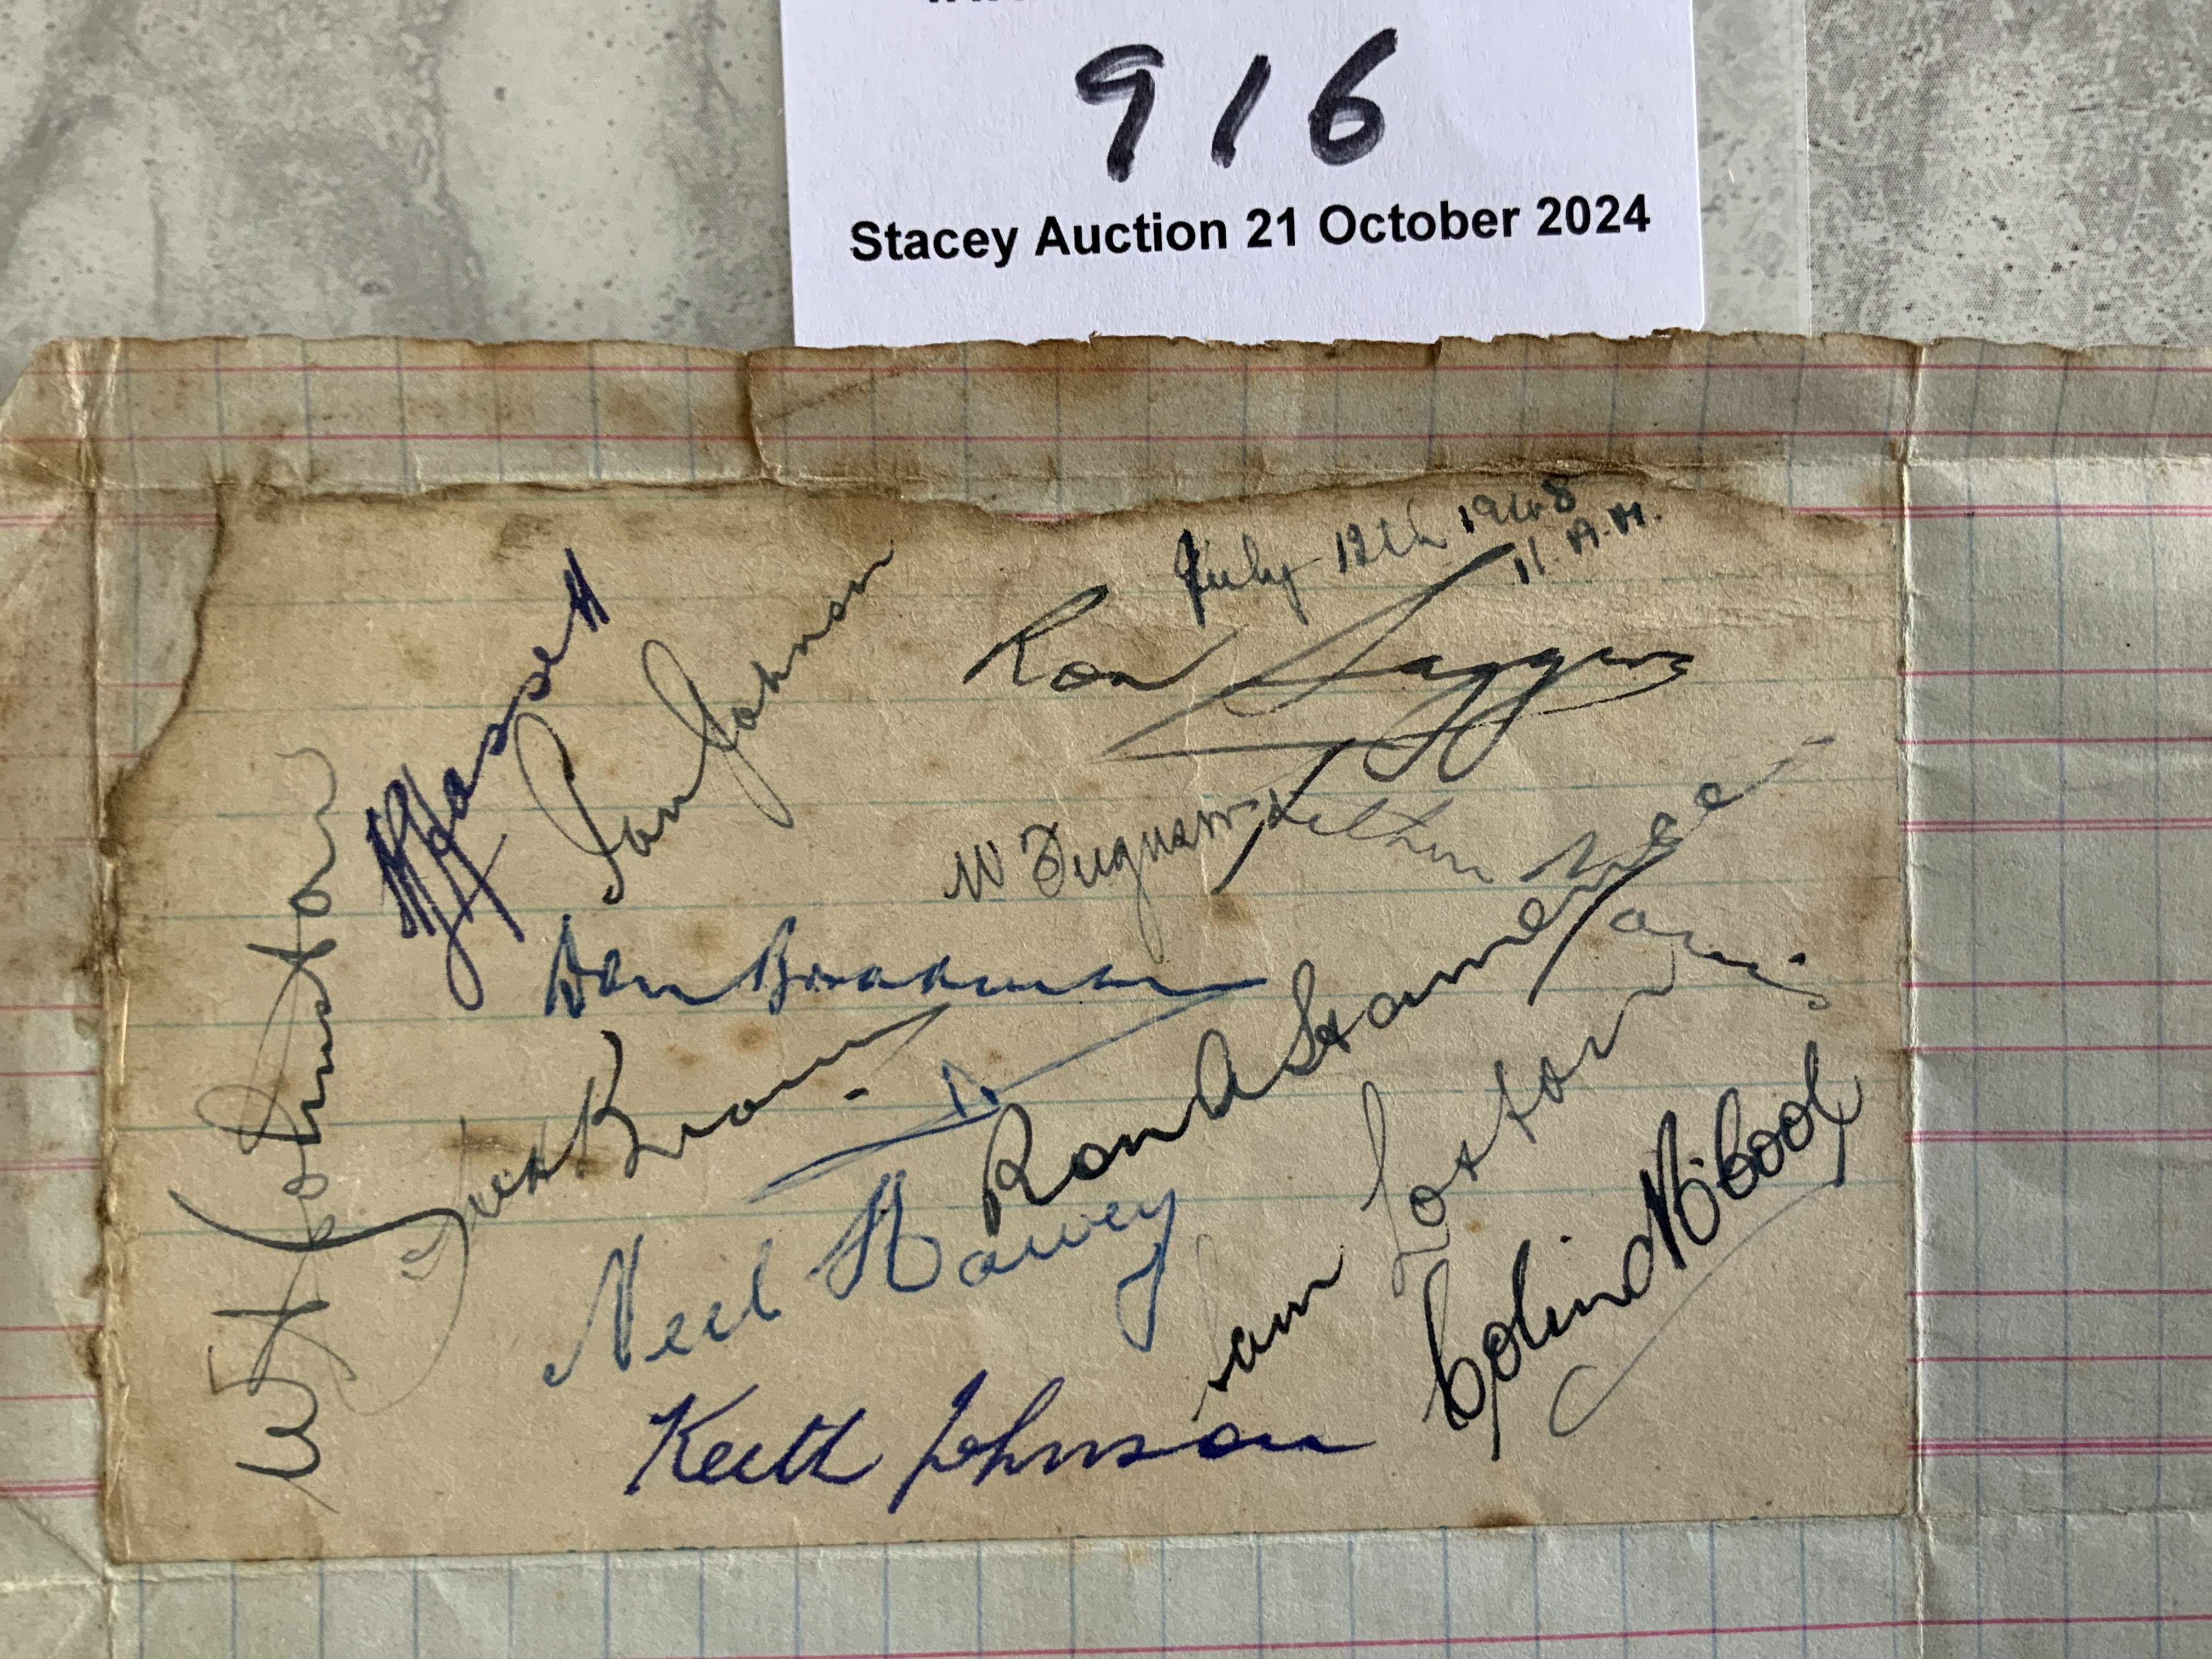 916
Stacey Auction 21 October 2024
July 12th 1948
11. A.M.
A L Hassett
Ian Johnson
Ron Saggers
W Ferguson
Arthur Mee
Don Bradman
W A Johnston
Jack Brown.
Ron A Hamence
Sam Loxton
Neil Harvey
Colin McCool
Keith Johnson